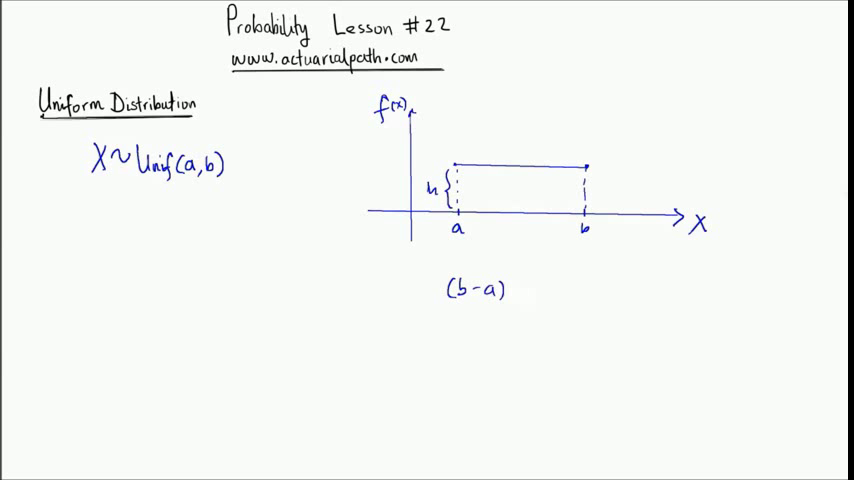 Probability Lesson #22
www.actuarialpath.com
Uniform Distribution
X~Unif(a,b)
f(x)
h
a
b
X
(b-a)